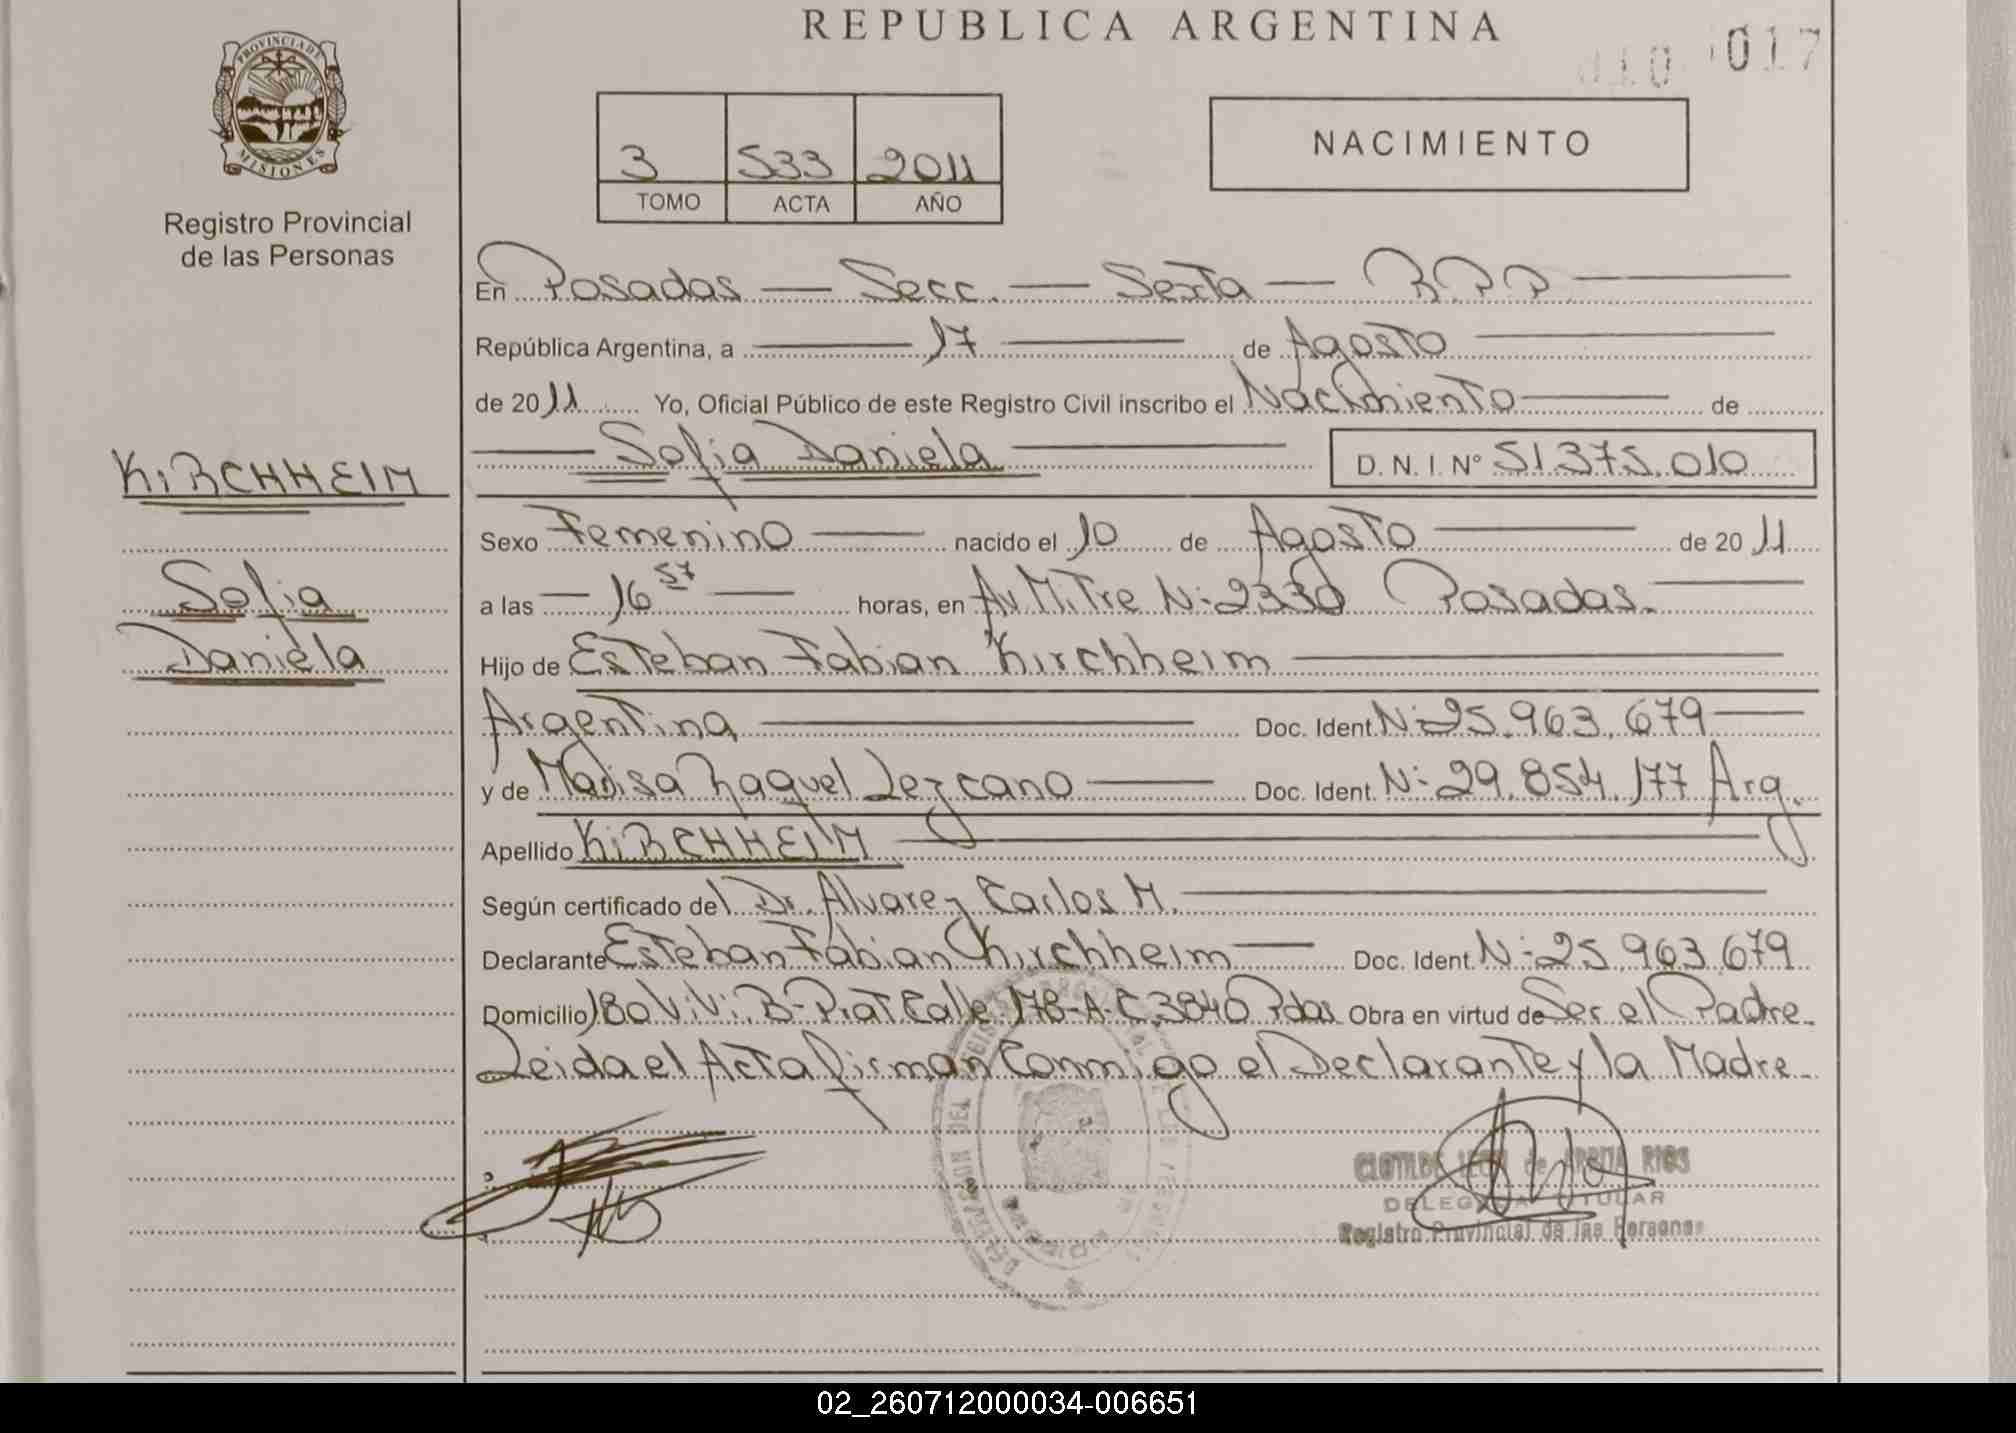 REPUBLICA ARGENTINA
010 017
PROVINCIA DE
MISIONES
Registro Provincial
de las Personas
3 533 2011
TOMO ACTA AÑO
NACIMIENTO
En Posadas — Secc. — Sexta — R.P.P.
República Argentina, a 17 de Agosto
de 2011 Yo, Oficial Público de este Registro Civil inscribo el Nacimiento de
Sofia Daniela D. N. I. Nº 51.375.010
KIRCHHEIM
Sofia
Daniela
Sexo Femenino nacido el 10 de Agosto de 2011
a las 16 57 horas, en Av. Mitre Nº 2330 Posadas.
Hijo de Esteban Fabian Kirchheim
Argentina Doc. Ident. Nº 25.963.679
y de Marisa Raquel Lezcano Doc. Ident. Nº 29.854.177 Arg.
Apellido KIRCHHEIM
Según certificado del Dr. Alvarez Carlos M.
Declarante Esteban Fabian Kirchheim Doc. Ident. Nº 25.963.679
Domicilio 180 Vivi. B- Prat Calle 178-A-C. 3840 Pdas Obra en virtud de Ser el Padre.
Leida el Acta firman Conmigo el Declarante y la Madre.
CLOTILDE de RIOS
DELEGADA TITULAR
Registro Provincial de las Personas
02_260712000034-006651